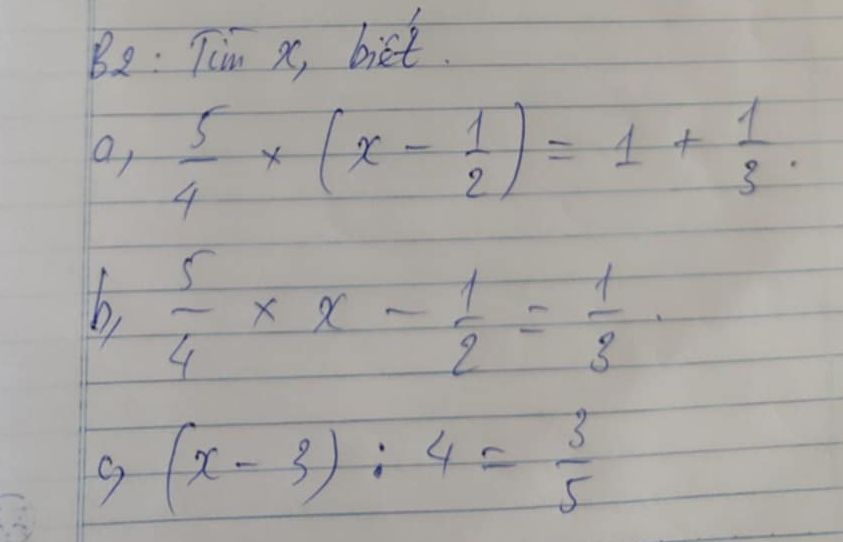 B2: Tìm x, biết.
a, 5/4 × (x - 1/2) = 1 + 1/3.
b, 5/4 × x - 1/2 = 1/3.
c, (x - 3) : 4 = 3/5